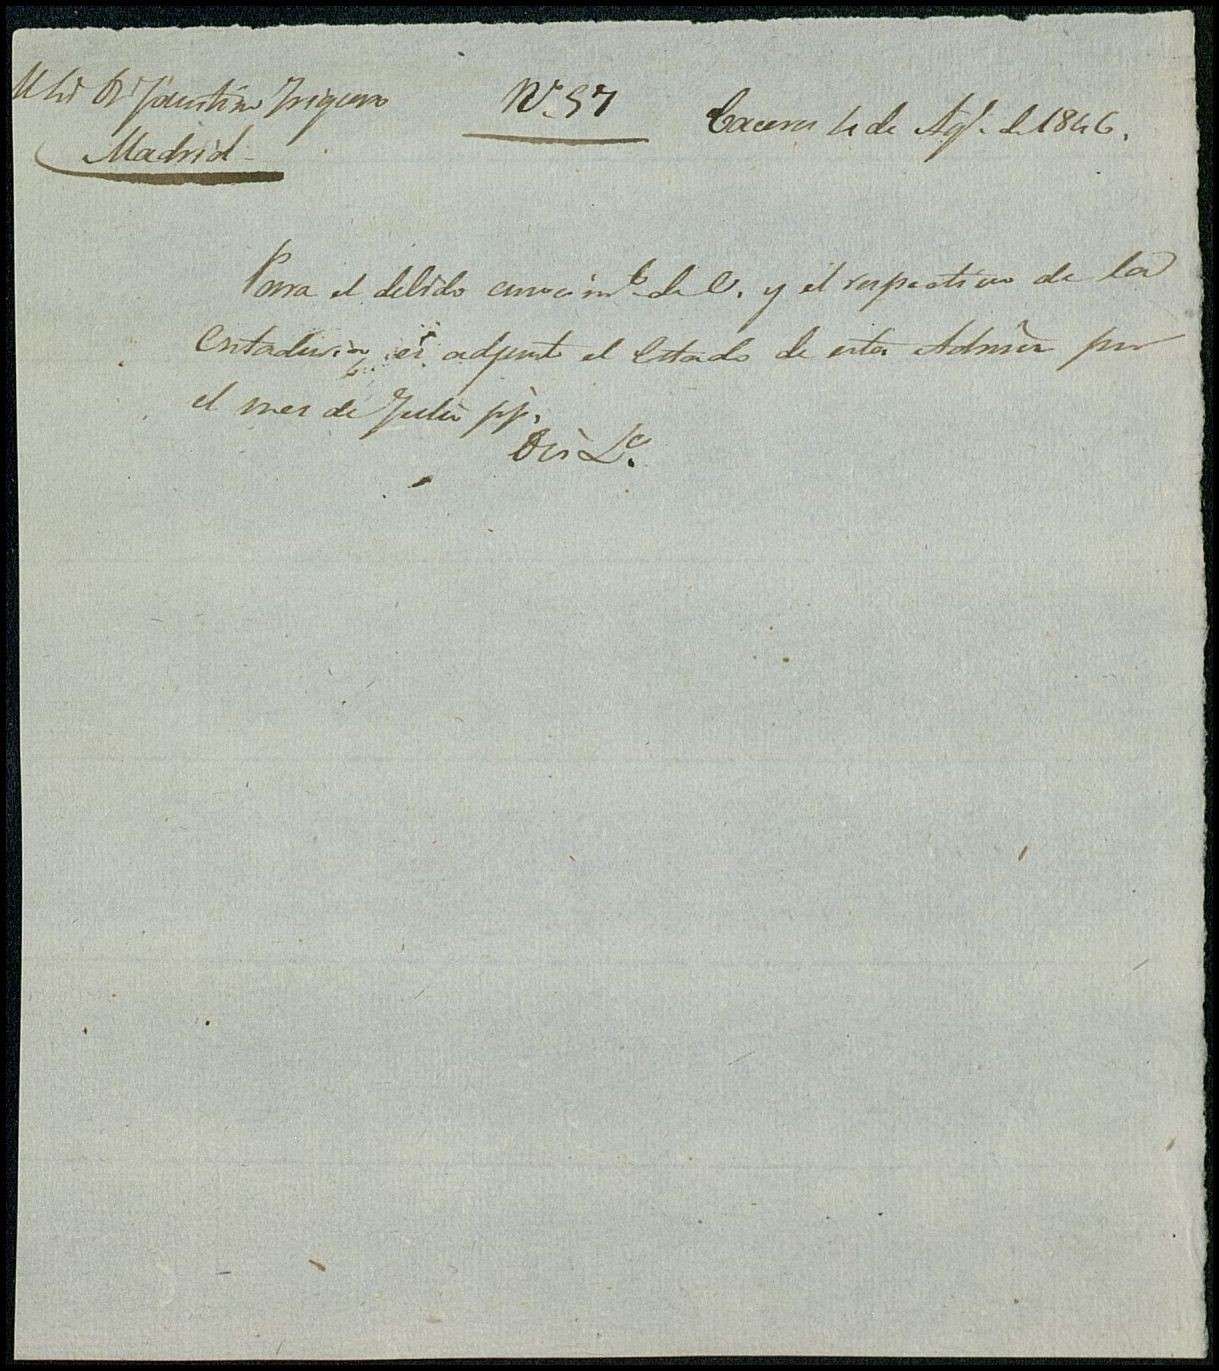 D.n Faustino Trigueros
Madrid
N.º 57
Caceres 4 de Ag.to de 1846.
Para el debido conocim.to de V. y el respectivo de la
Contaduria, es adjunto el Estado de esta Admon por
el mes de Julio pp.
Dios L.